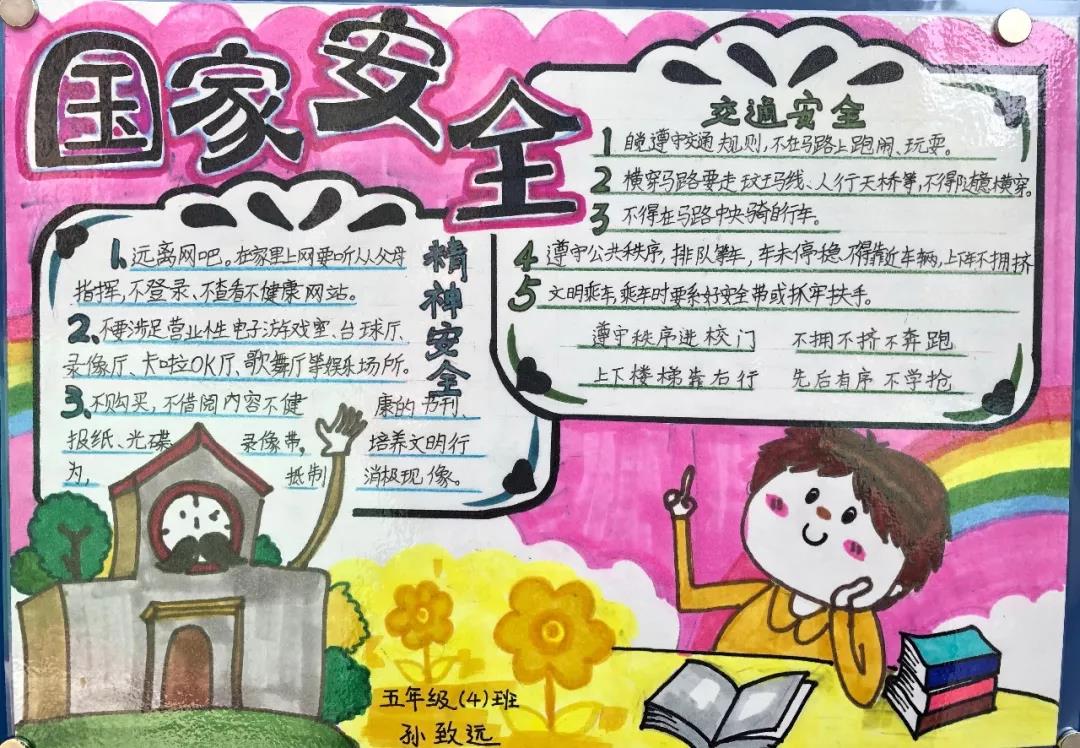 国家安全
精神安全
1、远离网吧。在家里上网要听从父母
指挥,不登录、不查看不健康网站。
2、不要涉足营业性电子游戏室、台球厅、
录像厅、卡啦OK厅、歌舞厅等娱乐场所。
3、不购买,不借阅内容不健康的书刊、
报纸、光碟、录像带,培养文明行
为,抵制消极现像。
交通安全
1 自觉遵守交通规则,不在马路上跑闹、玩耍。
2 横穿马路要走斑马线、人行天桥等,不得随意横穿。
3 不得在马路中央骑自行车。
4 遵守公共秩序,排队等车,车未停稳不得靠近车辆,上下车不拥挤
5 文明乘车,乘车时要系好安全带或抓牢扶手。
遵守秩序进校门 不拥不挤不奔跑
上下楼梯靠右行 先后有序不学抢
五年级(4)班
孙致远